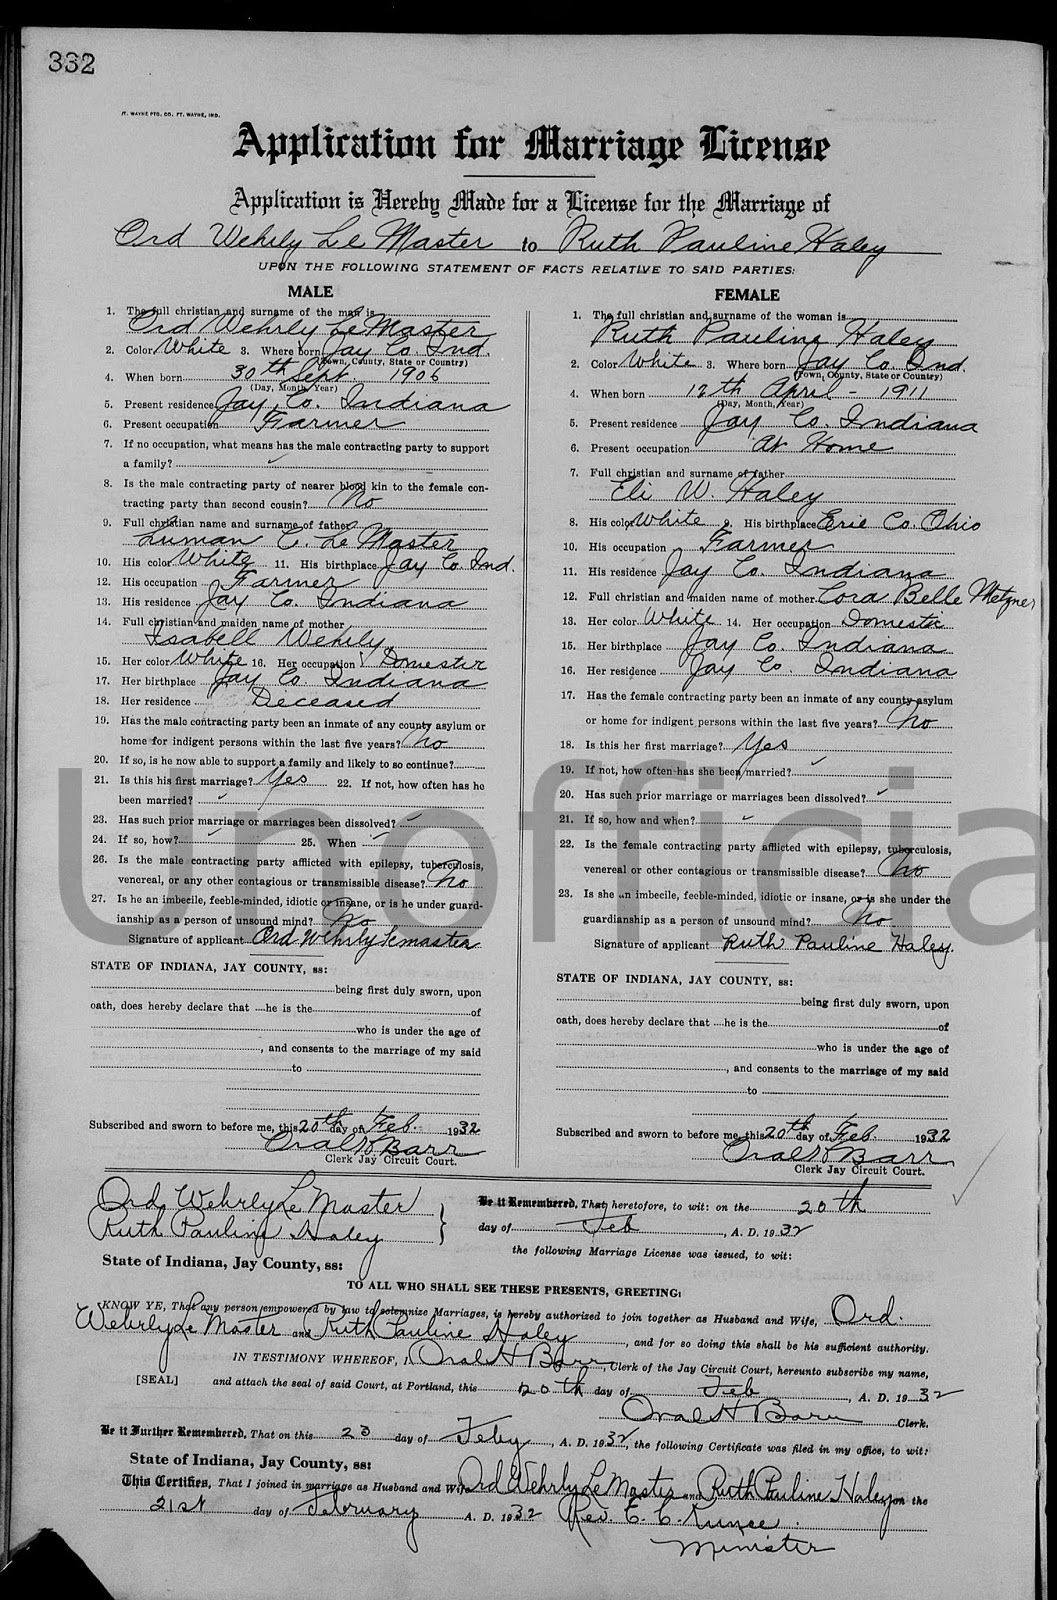 332
FT. WAYNE PTG. CO. FT. WAYNE, IND.
Application for Marriage License
Application is Hereby Made for a License for the Marriage of
Ord Wehrly Le Master to Ruth Pauline Haley
UPON THE FOLLOWING STATEMENT OF FACTS RELATIVE TO SAID PARTIES:
MALE
1. The full christian and surname of the man is
Ord Wehrly Le Master
2. Color White 3. Where born Jay Co. Ind.
(Town, County, State or Country)
4. When born 30th Sept 1906
(Day, Month, Year)
5. Present residence Jay Co. Indiana
6. Present occupation Farmer
7. If no occupation, what means has the male contracting party to support
a family? ✓
8. Is the male contracting party of nearer blood kin to the female con-
tracting party than second cousin? No
9. Full christian name and surname of father
Luman C. Le Master
10. His color White 11. His birthplace Jay Co. Ind.
12. His occupation Farmer
13. His residence Jay Co. Indiana
14. Full christian and maiden name of mother
Isabell Wehrly
15. Her color White 16. Her occupation Domestic
17. Her birthplace Jay Co. Indiana
18. Her residence Deceased
19. Has the male contracting party been an inmate of any county asylum or
home for indigent persons within the last five years? No
20. If so, is he now able to support a family and likely to so continue?
21. Is this his first marriage? Yes 22. If not, how often has he
been married? ✓
23. Has such prior marriage or marriages been dissolved? ✓
24. If so, how? ✓ 25. When ✓
26. Is the male contracting party afflicted with epilepsy, tuberculosis,
venereal, or any other contagious or transmissible disease? No
27. Is he an imbecile, feeble-minded, idiotic or insane, or is he under guard-
ianship as a person of unsound mind? No
Signature of applicant Ord Wehrly Lemaster
STATE OF INDIANA, JAY COUNTY, ss:
being first duly sworn, upon
oath, does hereby declare that ....he is the of
who is under the age of
, and consents to the marriage of my said
to
Subscribed and sworn to before me, this 20th day of Feb. 1932
Oral H Barr
Clerk Jay Circuit Court.
FEMALE
1. The full christian and surname of the woman is
Ruth Pauline Haley
2. Color White 3. Where born Jay Co. Ind.
(Town, County, State or Country)
4. When born 12th April - 1911
(Day, Month, Year)
5. Present residence Jay Co. Indiana
6. Present occupation At Home
7. Full christian and surname of father
Eli W. Haley
8. His color White 9. His birthplace Erie Co. Ohio
10. His occupation Farmer
11. His residence Jay Co. Indiana
12. Full christian and maiden name of mother Cora Belle Metzner
13. Her color White 14. Her occupation Domestic
15. Her birthplace Jay Co. Indiana
16. Her residence Jay Co. Indiana
17. Has the female contracting party been an inmate of any county asylum
or home for indigent persons within the last five years? No
18. Is this her first marriage? Yes
19. If not, how often has she been married? ✓
20. Has such prior marriage or marriages been dissolved? ✓
21. If so, how and when? ✓
22. Is the female contracting party afflicted with epilepsy, tuberculosis,
venereal or other contagious or transmissible disease? No
23. Is she an imbecile, feeble-minded, idiotic or insane, or is she under the
guardianship as a person of unsound mind? No
Signature of applicant Ruth Pauline Haley.
STATE OF INDIANA, JAY COUNTY, ss:
being first duly sworn, upon
oath, does hereby declare that ....he is the of
who is under the age of
, and consents to the marriage of my said
to
Subscribed and sworn to before me, this 20th day of Feb. 1932
Oral H Barr
Clerk Jay Circuit Court.
Unofficia
Ord Wehrly Le Master
Ruth Pauline Haley
State of Indiana, Jay County, ss:
Be it Remembered, That heretofore, to wit: on the 20th
day of Feb , A. D. 1932
the following Marriage License was issued, to wit:
TO ALL WHO SHALL SEE THESE PRESENTS, GREETING:
KNOW YE, That any person empowered by law to solemnize Marriages, is hereby authorized to join together as Husband and Wife, Ord.
Wehrly Le Master and Ruth Pauline Haley , and for so doing this shall be his sufficient authority.
IN TESTIMONY WHEREOF, I Oral H Barr , Clerk of the Jay Circuit Court, hereunto subscribe my name,
[SEAL] and attach the seal of said Court, at Portland, this 20th day of Feb , A. D. 1932
Oral H Barr Clerk.
Be it Further Remembered, That on this 23 day of Feby , A. D. 1932, the following Certificate was filed in my office, to wit:
State of Indiana, Jay County, ss:
This Certifies, That I joined in marriage as Husband and Wife Ord Wehrly Le Master and Ruth Pauline Haley on the
21st day of February A. D. 1932 Rev. E. C. Kunce.
Minister